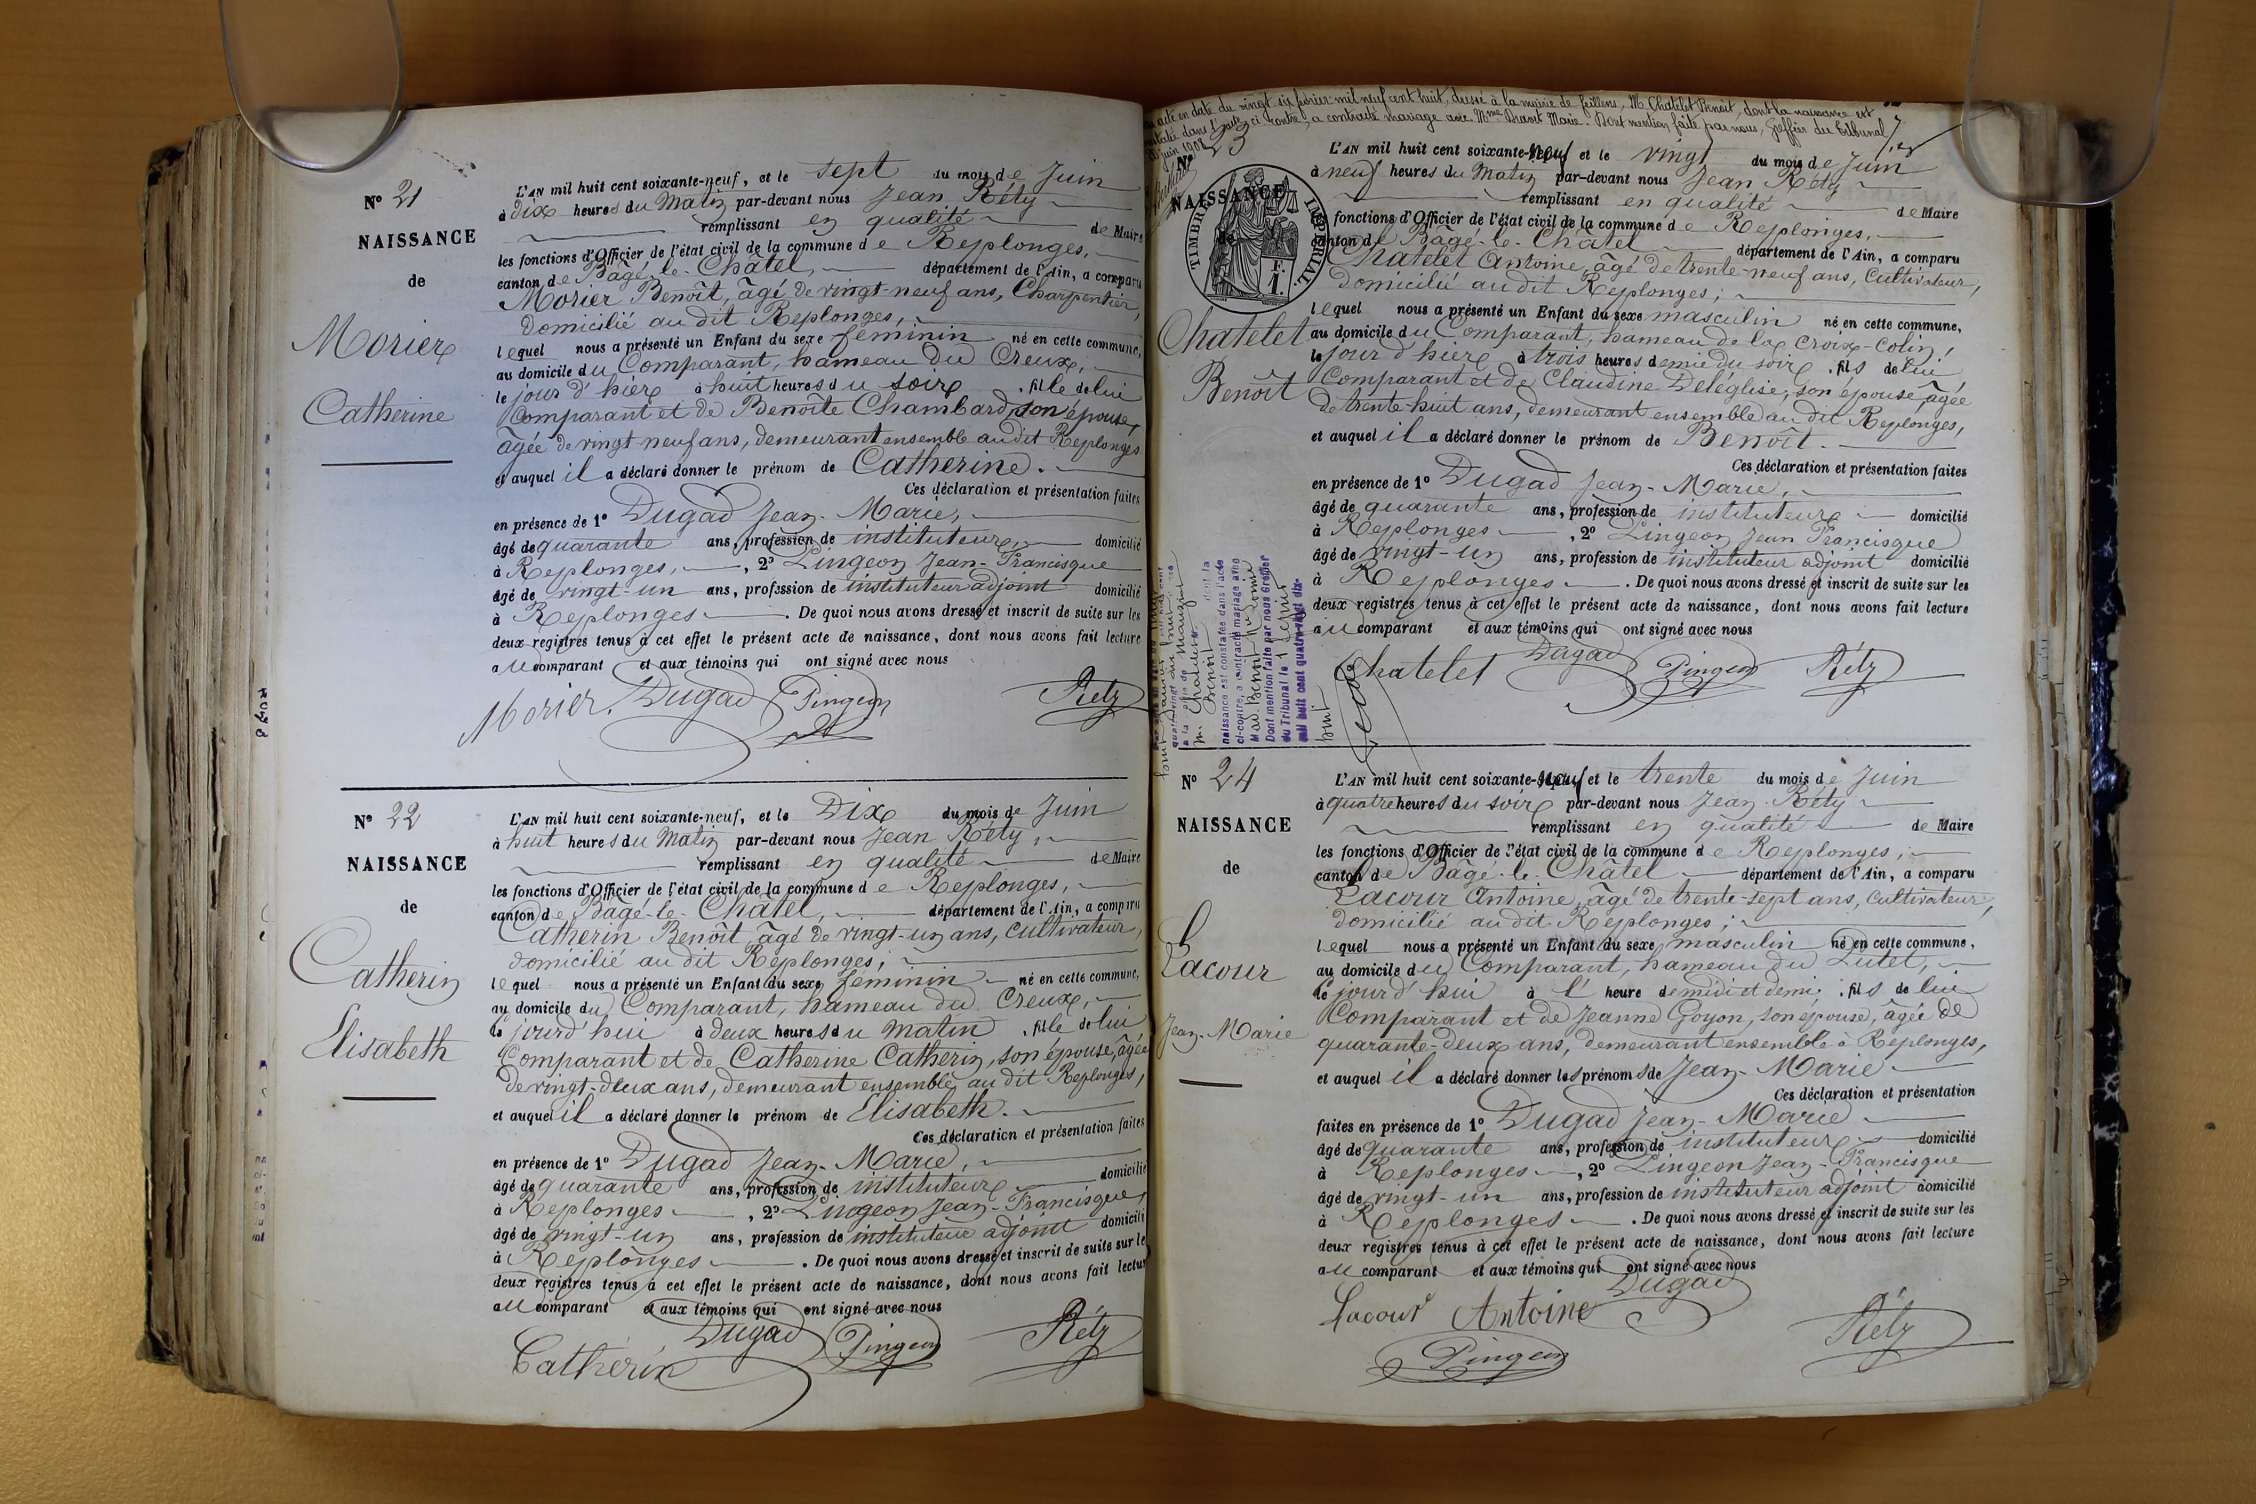 N° 21
NAISSANCE
de
Morier
Catherine
L'AN mil huit cent soixante-neuf, et le sept du mois de Juin
à dix heures du Matin par-devant nous Jean Réty
remplissant en qualité de Maire
les fonctions d'Officier de l'état civil de la commune de Replonges,
canton de Bâgé-le-Châtel, département de l'Ain, a comparu
Morier Benoît, âgé de vingt-neuf ans, Charpentier,
domicilié au dit Replonges,
lequel nous a présenté un Enfant du sexe féminin né en cette commune,
au domicile du Comparant, hameau du Creux,
le jour d'hier à huit heures du soir, fille de lui
Comparant et de Benoîte Chambard, son épouse,
âgée de vingt neuf ans, demeurant ensemble au dit Replonges
et auquel il a déclaré donner le prénom de Catherine.
Ces déclaration et présentation faites
en présence de 1° Dugad Jean-Marie,
âgé de quarante ans, profession de instituteur, domicilié
à Replonges, , 2° Pingeon Jean-Francisque
âgé de vingt-un ans, profession de instituteur adjoint domicilié
à Replonges . De quoi nous avons dressé et inscrit de suite sur les
deux registres tenus à cet effet le présent acte de naissance, dont nous avons fait lecture
au comparant et aux témoins qui ont signé avec nous
Morier Dugad Pingeon Réty
N° 22
NAISSANCE
de
Catherin
Elisabeth
L'AN mil huit cent soixante-neuf, et le Dix du mois de Juin
à huit heures du Matin par-devant nous Jean Réty,
remplissant en qualité de Maire
les fonctions d'Officier de l'état civil de la commune de Replonges,
canton de Bâgé-le-Châtel, département de l'Ain, a comparu
Catherin Benoît, âgé de vingt-un ans, cultivateur,
domicilié au dit Replonges;
lequel nous a présenté un Enfant du sexe féminin né en cette commune,
au domicile du Comparant, hameau du Creux,
le jourd'hui à deux heures du matin, fille de lui
Comparant et de Catherine Catherin, son épouse, âgée
de vingt-deux ans, demeurant ensemble au dit Replonges,
et auquel il a déclaré donner le prénom de Elisabeth.
Ces déclaration et présentation faites
en présence de 1° Dugad Jean-Marie,
âgé de quarante ans, profession de instituteur domicilié
à Replonges , 2° Pingeon Jean-Francisque,
âgé de vingt-un ans, profession de instituteur adjoint domicilié
à Replonges . De quoi nous avons dressé et inscrit de suite sur les
deux registres tenus à cet effet le présent acte de naissance, dont nous avons fait lecture
au comparant et aux témoins qui ont signé avec nous
Catherin Dugad Pingeon Réty
acte en date du vingt six février mil neuf cent huit, dressé à la mairie de Feillens, M. Chatelet Benoît, dont la naissance est
constatée dans l'acte ci contre, a contracté mariage avec Mme Durant Marie. Dont mention faite par nous, Greffier du Tribunal
juin 1908
N° 23
NAISSANCE
de
TIMBRE IMPERIAL
F.
1.
Chatelet
Benoît
M. Chatelet
Benoît dont la
naissance est constatée dans l'acte
ci-contre, a contracté mariage avec
Dont mention faite par nous Greffier
du Tribunal le
mil huit cent quatre vingt dix-
huit
L'AN mil huit cent soixante-neuf et le vingt du mois de Juin
à neuf heures du Matin par-devant nous Jean Réty
remplissant en qualité de Maire
fonctions d'Officier de l'état civil de la commune de Replonges,
canton de Bâgé-le-Châtel département de l'Ain, a comparu
Chatelet Antoine, âgé de trente-neuf ans, Cultivateur,
domicilié au dit Replonges;
lequel nous a présenté un Enfant du sexe masculin né en cette commune,
au domicile du Comparant, hameau de la Croix-Colin,
le jour d'hier à trois heures demie du soir, fils de lui
Comparant et de Claudine Deléglise, son épouse, âgée
de trente huit ans, demeurant ensemble au dit Replonges,
et auquel il a déclaré donner le prénom de Benoît.
Ces déclaration et présentation faites
en présence de 1° Dugad Jean-Marie,
âgé de quarante ans, profession de instituteur domicilié
à Replonges , 2° Pingeon Jean Francisque
âgé de vingt-un ans, profession de instituteur adjoint domicilié
à Replonges . De quoi nous avons dressé et inscrit de suite sur les
deux registres tenus à cet effet le présent acte de naissance, dont nous avons fait lecture
au comparant et aux témoins qui ont signé avec nous
Chatelet Dugad Pingeon Réty
N° 24
NAISSANCE
de
Lacour
Jean-Marie
L'AN mil huit cent soixante-neuf et le trente du mois de Juin
à quatre heures du soir par-devant nous Jean Réty
remplissant en qualité de Maire
les fonctions d'Officier de l'état civil de la commune de Replonges,
canton de Bâgé-le-Châtel département de l'Ain, a comparu
Lacour Antoine, âgé de trente-sept ans, cultivateur,
domicilié au dit Replonges;
lequel nous a présenté un Enfant du sexe masculin né en cette commune,
au domicile du Comparant, hameau du Lutet,
le jourd'hui à l' heure de midi et demi, fils de lui
Comparant et de Jeanne Goyon, son épouse, âgée de
quarante-deux ans, demeurant ensemble à Replonges,
et auquel il a déclaré donner les prénoms de Jean-Marie
Ces déclaration et présentation
faites en présence de 1° Dugad Jean-Marie
âgé de quarante ans, profession de instituteur domicilié
à Replonges , 2° Pingeon Jean-Francisque
âgé de vingt-un ans, profession de instituteur adjoint domicilié
à Replonges . De quoi nous avons dressé et inscrit de suite sur les
deux registres tenus à cet effet le présent acte de naissance, dont nous avons fait lecture
au comparant et aux témoins qui ont signé avec nous
Lacour Antoine Dugad
Pingeon Réty